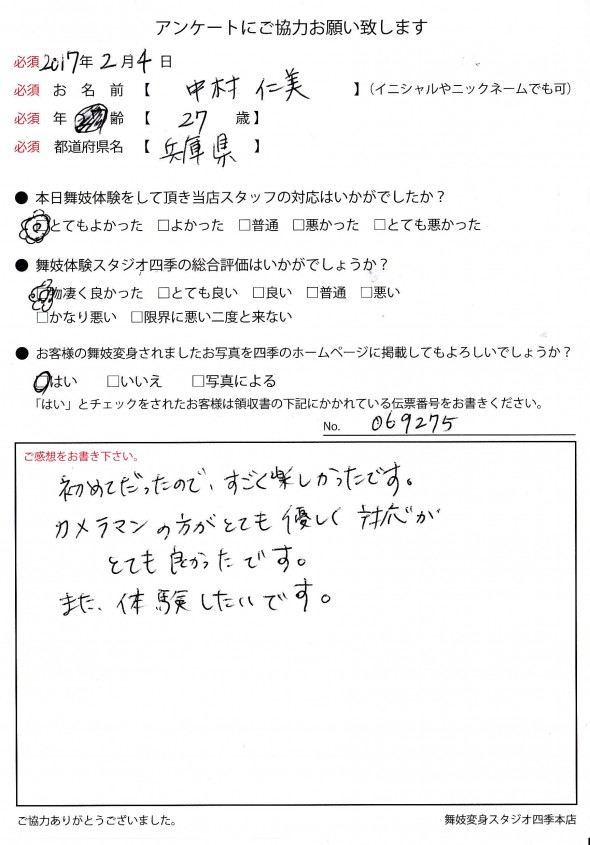 アンケートにご協力お願い致します
必須 2017年 2月 4日
必須 お名前【 中村 仁美 】(イニシャルやニックネームでも可)
必須 年齢【 27 歳】
必須 都道府県名【 兵庫県 】
● 本日舞妓体験をして頂き当店スタッフの対応はいかがでしたか?
とてもよかった □よかった □普通 □悪かった □とても悪かった
● 舞妓体験スタジオ四季の総合評価はいかがでしょうか?
□物凄く良かった □とても良い □良い □普通 □悪い
□かなり悪い □限界に悪い二度と来ない
● お客様の舞妓変身されましたお写真を四季のホームページに掲載してもよろしいでしょうか?
□はい □いいえ □写真による
「はい」とチェックをされたお客様は領収書の下記にかかれている伝票番号をお書きください。
No. 069275
ご感想をお書き下さい。
初めてだったので、すごく楽しかったです。
カメラマンの方がとても優しく対応が
とても良かったです。
また、体験したいです。
ご協力ありがとうございました。 舞妓変身スタジオ四季本店